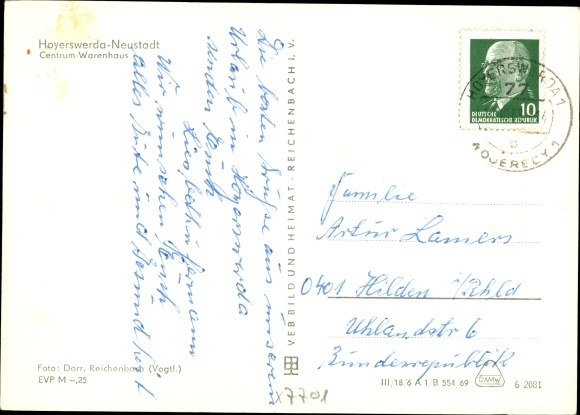 Hoyerswerda-Neustadt
Centrum-Warenhaus
Die besten Grüße aus unserem
Urlaub in Hoyerswerda
senden Euch
Lisbeth u. Hermann
Wir wünschen Euch
alles Gute und Gesundheit
Foto: Darr, Reichenbach (Vogtl.)
EVP M –,25
VEB BILD UND HEIMAT · REICHENBACH i. V.
HOYERSWERDA 1
WOJERECY 1
b
10
DEUTSCHE
DEMOKRATISCHE REPUBLIK
Familie
Artur Lamers
0401 Hilden i/Rhld
Uhlandstr 6
Bundesrepublik
III/18/6 A 1/B 554/69
DAMW
6 2081
x7701